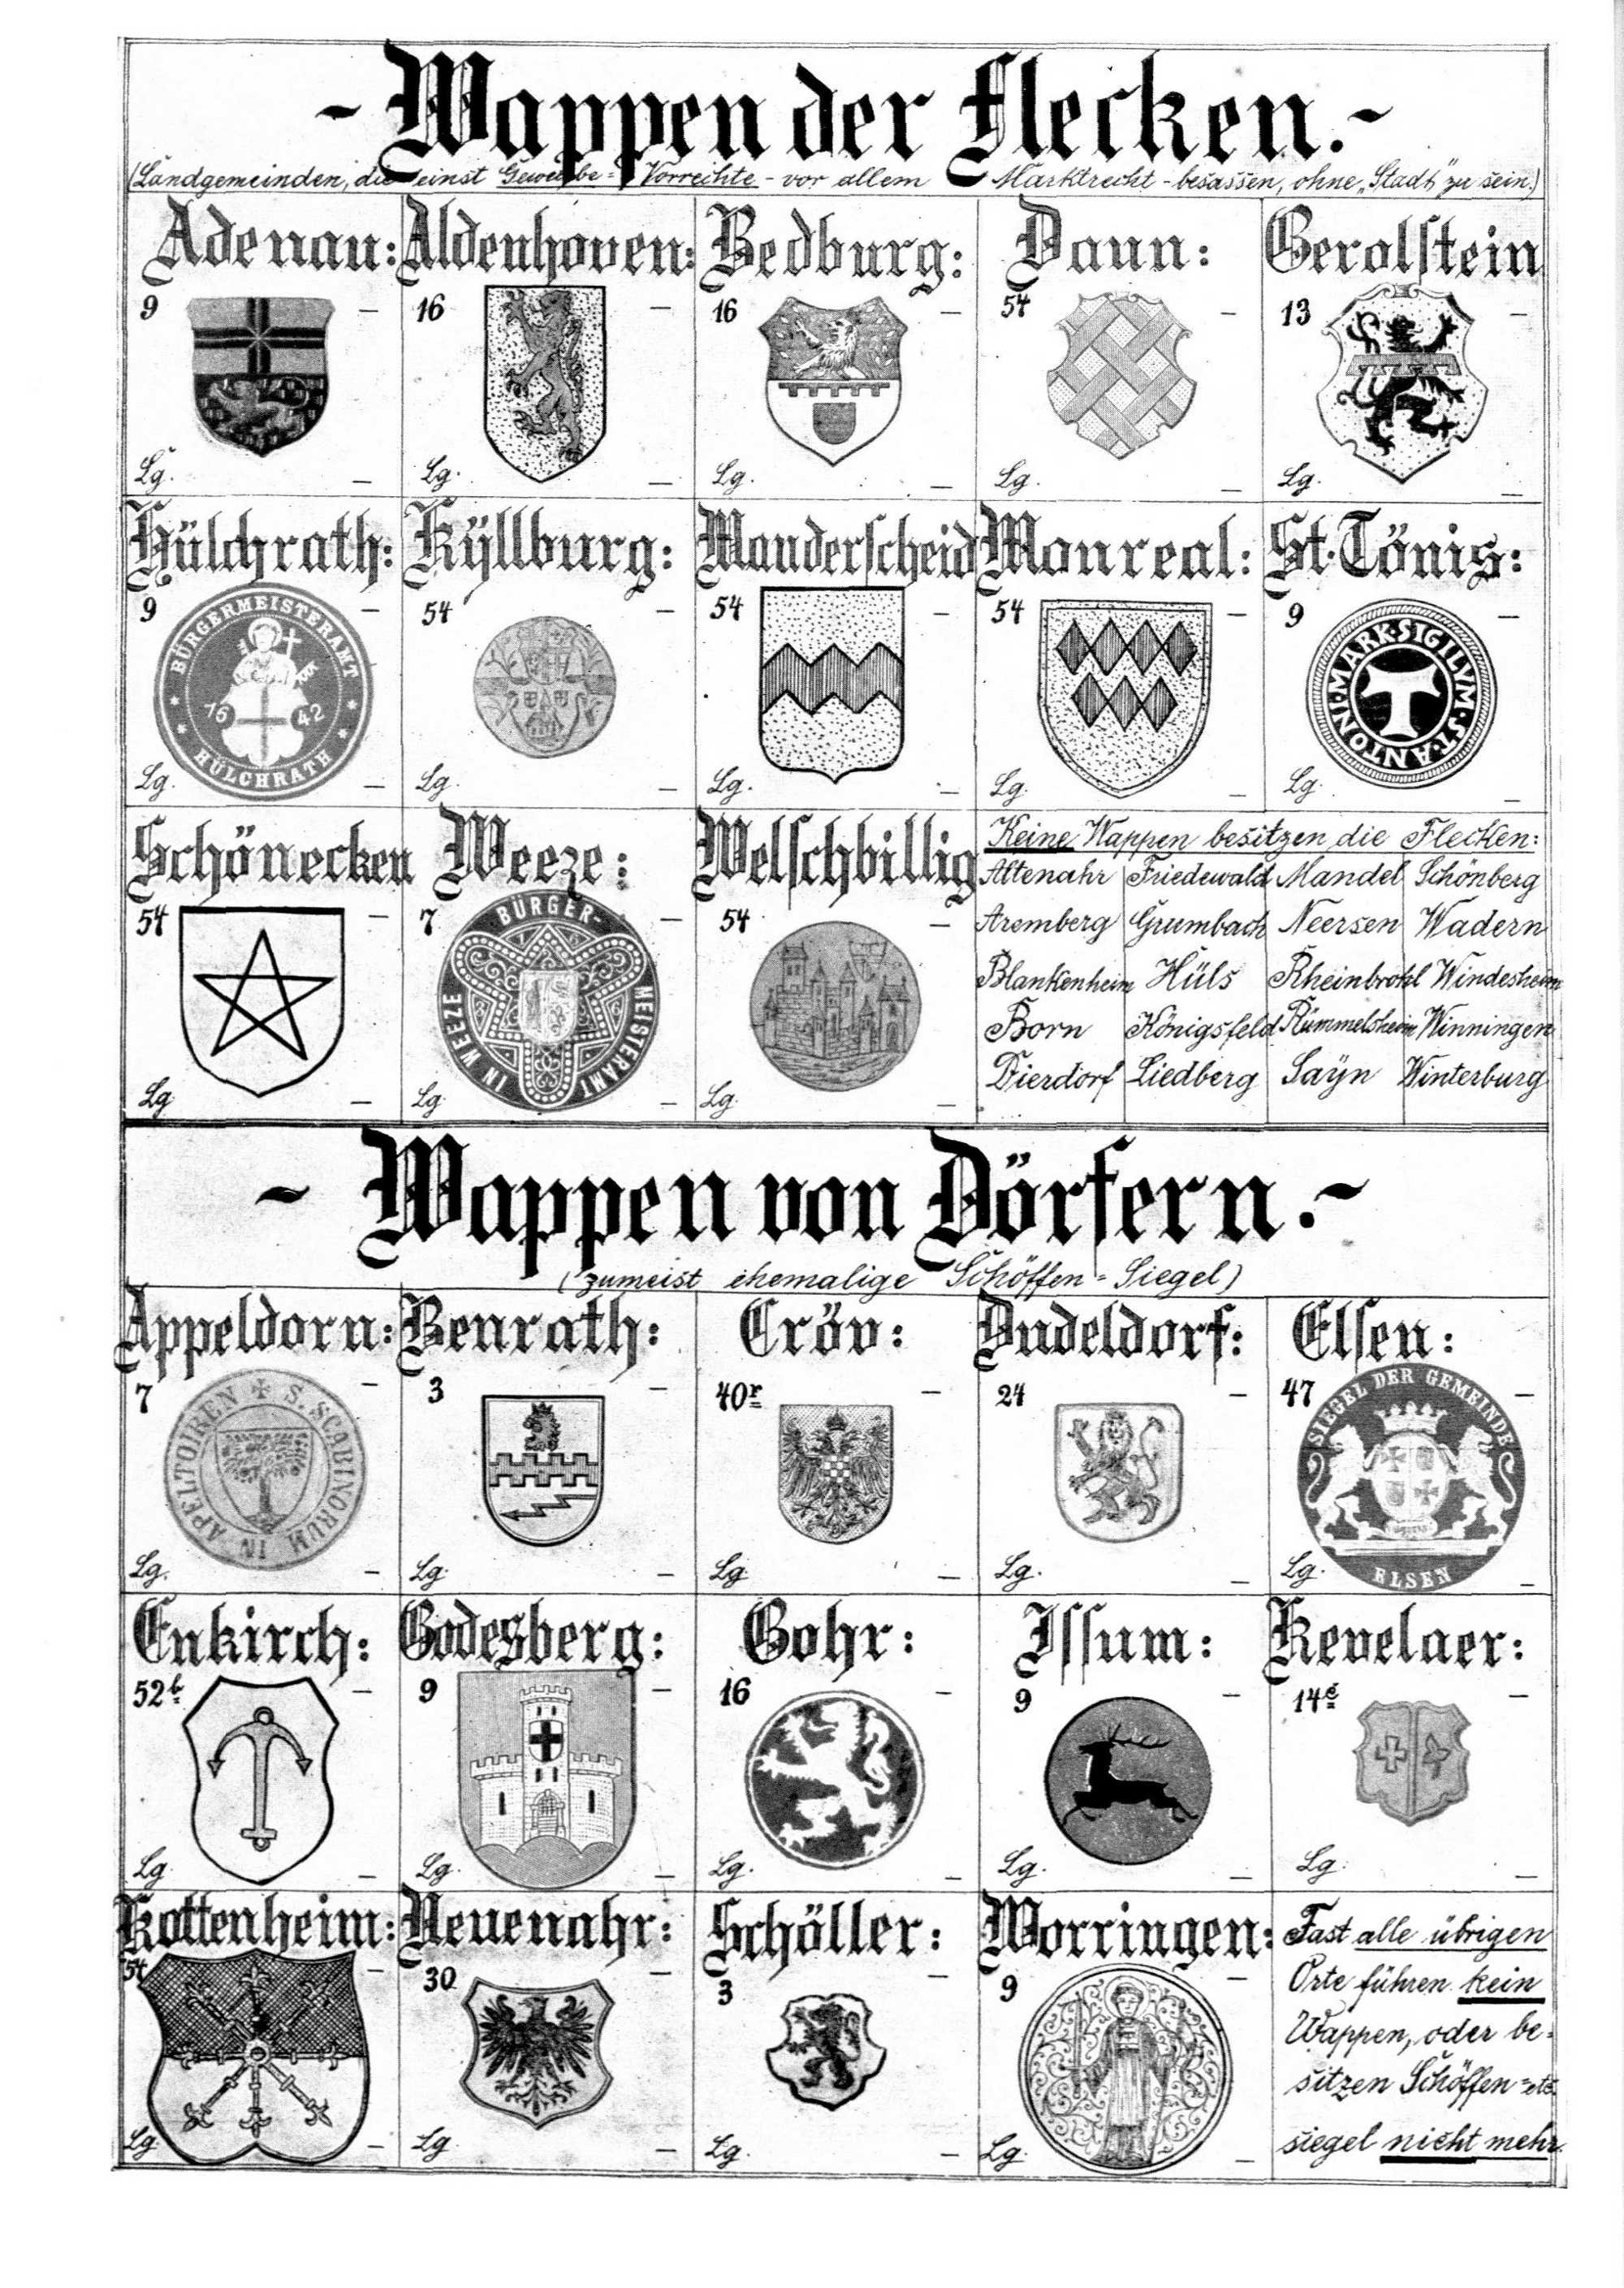 - Wappen der Flecken. -
(Landgemeinden, die einst Gewerbe=Vorrechte - vor allem Marktrecht - besassen, ohne „Stadt" zu sein.)
Adenau: Aldenhoven: Bedburg: Daun: Gerolstein
9 — 16 — 16 — 54 — 13 —
Lg. — Lg. — Lg. — Lg. — Lg. —
Hülchrath: Kÿllburg: Manderscheid Monreal: St. Tönis:
9 — 54 — 54 — 54 — 9 —
BÜRGERMEISTERAMT
15 42
HÜLCHRATH
MARK·SIGILVM·ST·ANTONI·
Lg. — Lg. — Lg. — Lg. — Lg. —
Schönecken Weeze: Welschbillig
54 — 7 — 54 —
BÜRGER-
MEISTERAMT
IN WEEZE
Lg — Lg. — Lg. —
Keine Wappen besitzen die Flecken:
Altenahr Friedewald Mandel Schönberg
Aremberg Grumbach Neersen Wadern
Blankenheim Hüls Rheinbrohl Windesheim
Born Königsfeld Rümmelsheim Winningen
Dierdorf Liedberg Saÿn Winterburg
- Wappen von Dörfern. -
(zumeist ehemalige Schöffen=Siegel)
Appeldorn: Benrath: Cröv: Dudeldorf: Elsen:
7 — 3 — 40r — 24 — 47 —
S. SCABINORUM IN APELTOIREN
SIEGEL DER GEMEINDE
ELSEN
Lg. — Lg. — Lg. — Lg. — Lg. —
Enkirch: Godesberg: Gohr: Issum: Kevelaer:
52b — 9 — 16 — 9 — 14c —
Lg. — Lg. — Lg. — Lg. — Lg. —
Kottenheim: Neuenahr: Schöller: Worringen:
54 — 30 — 3 — 9 —
Lg — Lg. — Lg. — Lg. —
Fast alle übrigen
Orte führen kein
Wappen, oder be=
sitzen Schöffen=etc.
siegel nicht mehr.